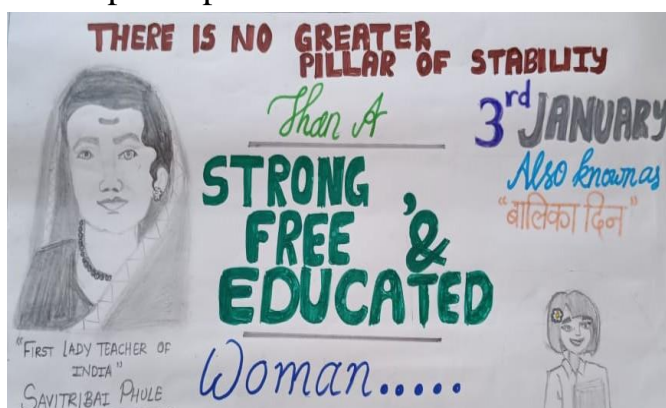 THERE IS NO GREATER
PILLAR OF STABILITY
Than A
STRONG,
FREE &
EDUCATED
Woman.....
3rd JANUARY
Also known as
"बालिका दिन"
"FIRST LADY TEACHER OF
INDIA"
SAVITRIBAI PHULE